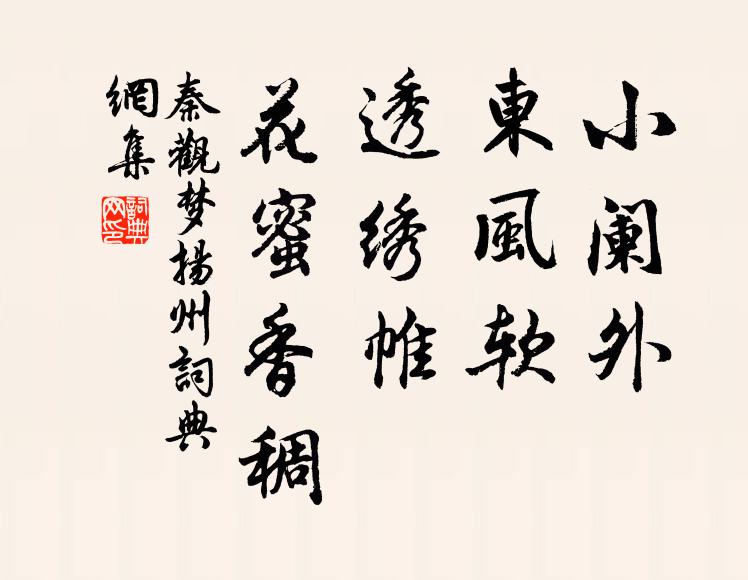 小阑外
東風软
透绣帷
花蜜香稠
秦觀梦揚州詞典
網集
詞典
网印